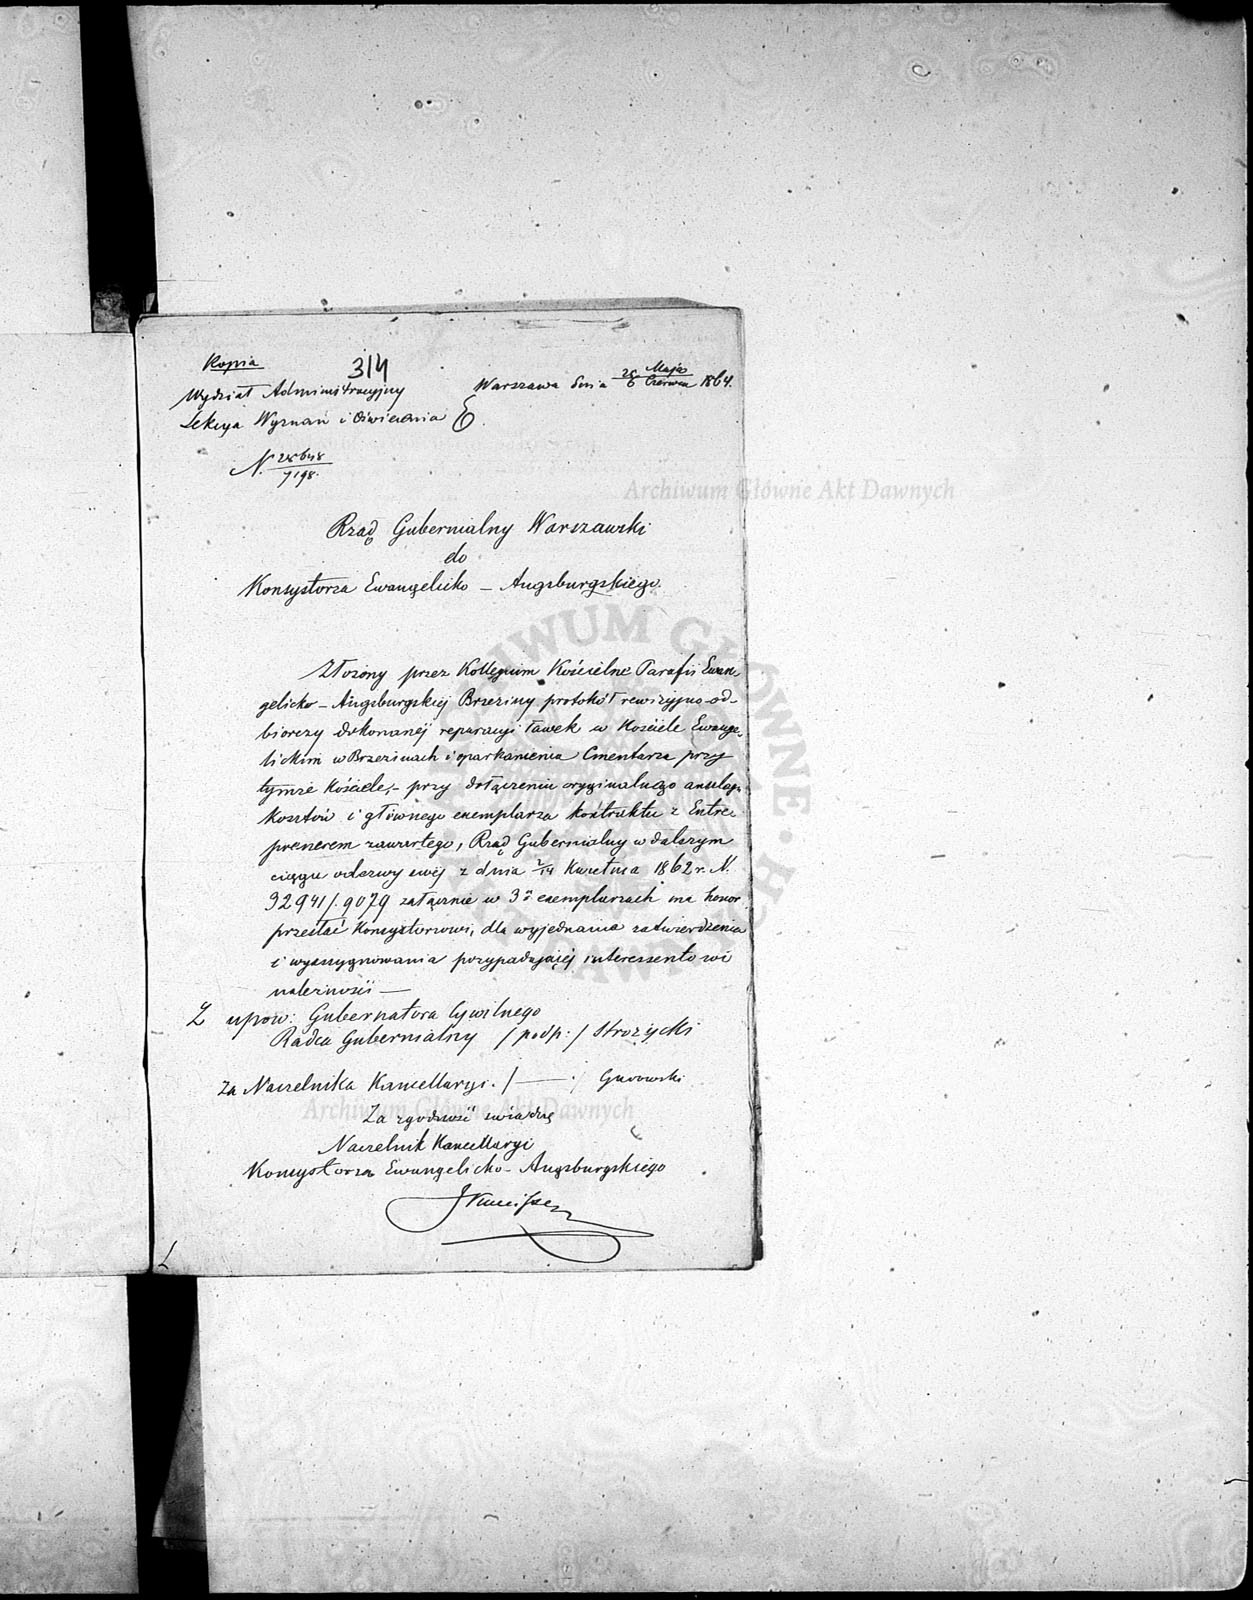 Kopia
314
Wydział Administracyjny
Warszawa dnia 25/6 Maja/Czerwca 1864.
Sekcya Wyznań i Oświecenia
N. 28648/7198.
Rząd Gubernialny Warszawski
do
Konsystorza Ewangelicko - Augsburgskiego.
Złożony przez Kollegium Kościelne Parafii Ewan-
gelicko - Augsburgskiej Brzeziny protokół rewizyjno-od-
biorczy dokonanej reparacyi ławek w Kościele Ewange-
lickim w Brzezinach i oparkanienia Cmentarza przy
tymże Kościele, - przy dołączeniu oryginalnego anszlagu
kosztów i głównego exemplarza kontraktu z Entre-
prenerem zawartego, Rząd Gubernialny w dalszym
ciągu odezwy swej z dnia 2/14 Kwietnia 1862 r. N.
32941/9079 załącznie w 3ch exemplarzach ma honor
przesłać Konsystorzowi, dla wyjednania zatwierdzenia
i wyassygnowania przypadającej interessentowi
należności —
Z upow: Gubernatora Cywilnego
Radca Gubernialny /podp:/ Strożycki
Za Naczelnika Kancellaryi. / — : /
Za zgodność świadczę
Naczelnik Kancellaryi
Konsystorza Ewangelicko - Augsburgskiego
Archiwum Główne Akt Dawnych
Archiwum Główne Akt Dawnych
ARCHIWUM GŁÓWNE AKT DAWNYCH